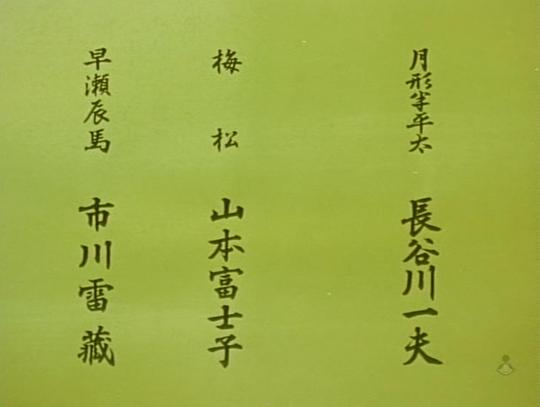 月形半平太
長谷川一夫
梅松
山本富士子
早瀬辰馬
市川雷蔵